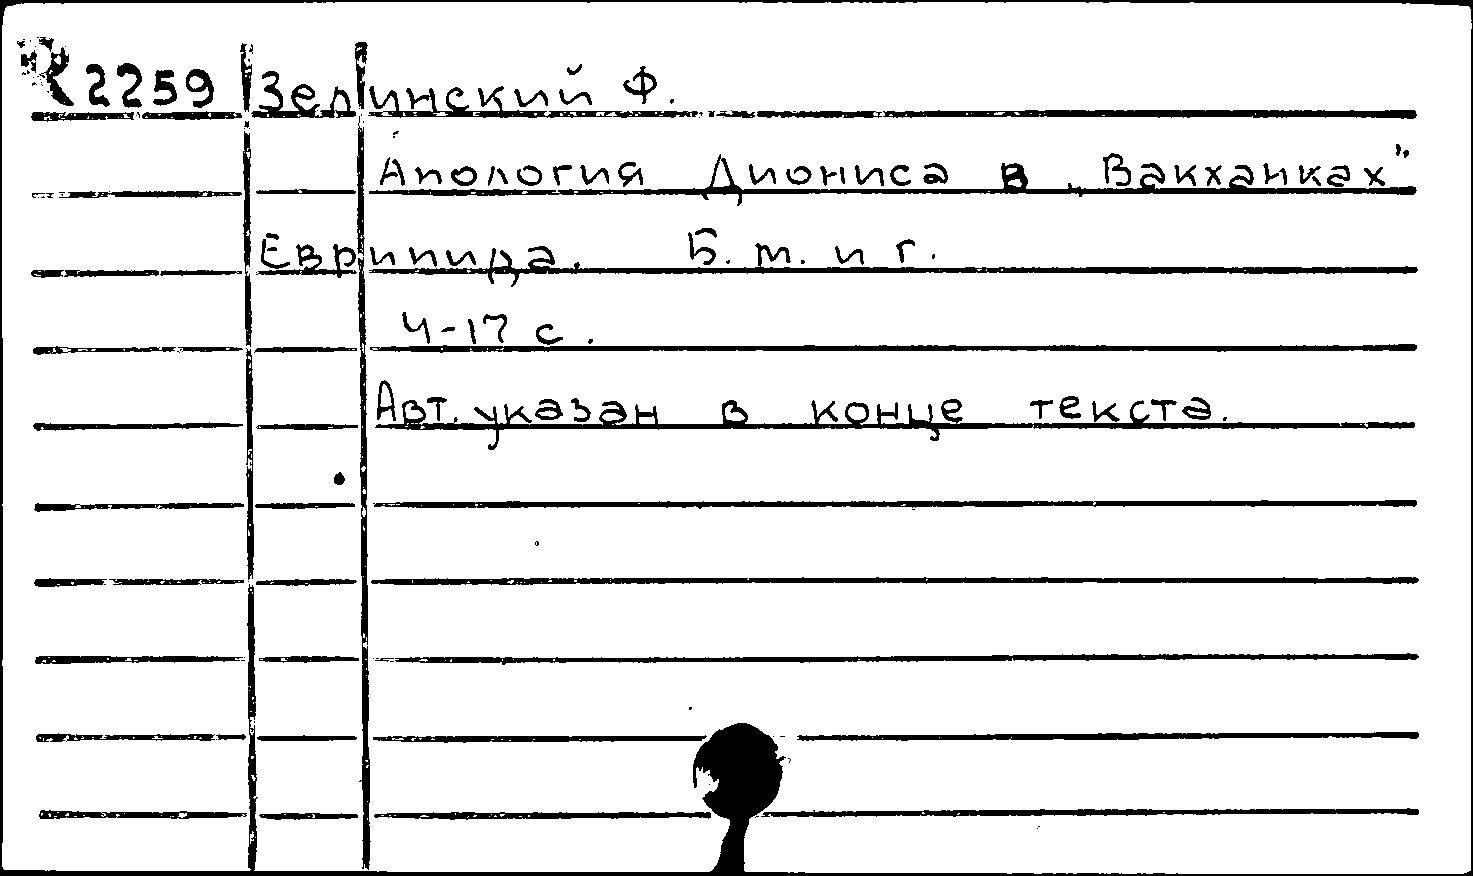 R2259 Зелинский Ф.
Апология Диониса в „Вакханках"
Еврипида. Б. м. и г.
4-17 с.
Авт. указан в конце текста.